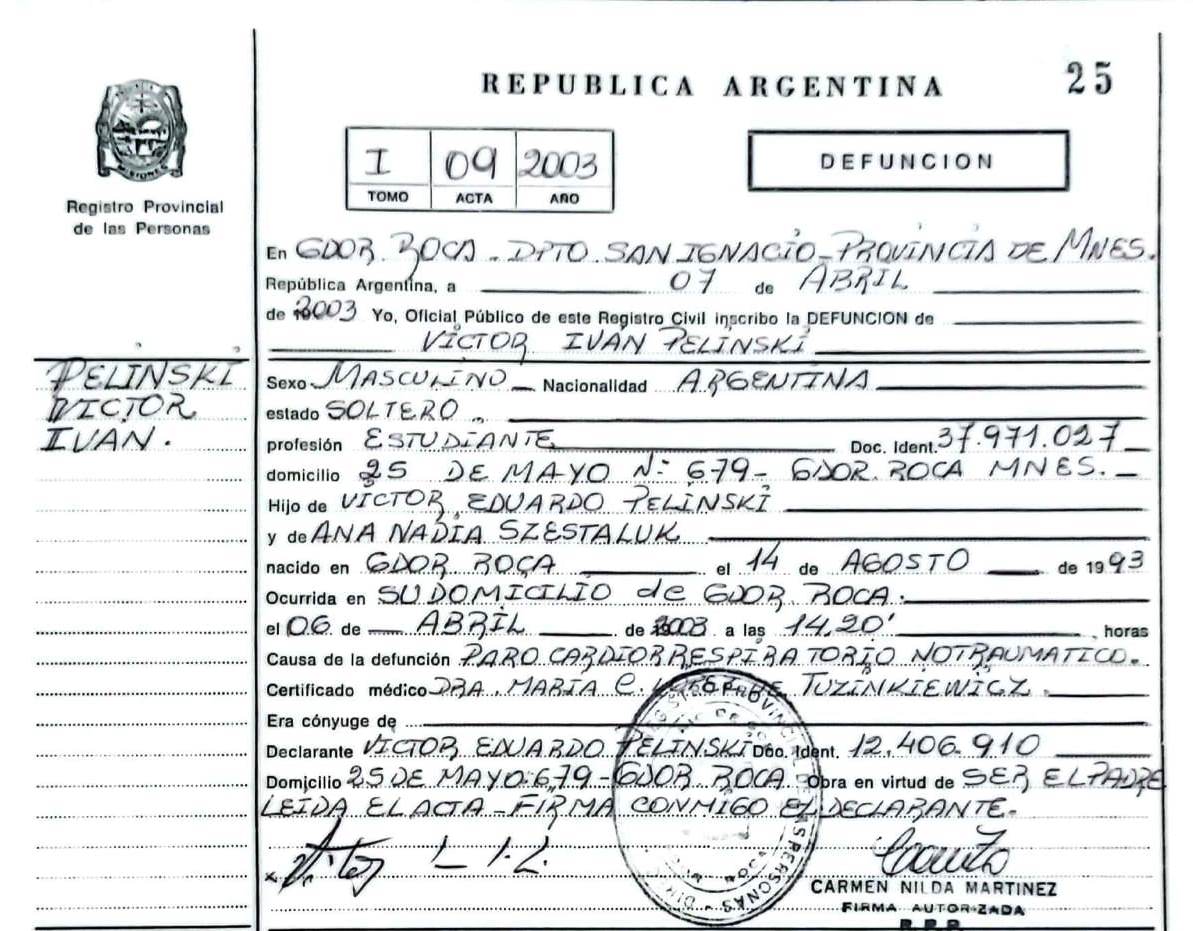 REPUBLICA ARGENTINA 25
MISIONES
Registro Provincial
de las Personas
I 09 2003
TOMO ACTA AÑO
DEFUNCION
En GDOR. ROCA. DPTO. SAN IGNACIO - PROVINCIA DE MNES.
República Argentina, a 07 de ABRIL
de 2003 Yo, Oficial Público de este Registro Civil inscribo la DEFUNCION de
VICTOR IVAN PELINSKI
PELINSKI
VICTOR
IVAN.
Sexo MASCULINO Nacionalidad ARGENTINA
estado SOLTERO
profesión ESTUDIANTE Doc. Ident. 37.971.027
domicilio 25 DE MAYO Nº 679 - GDOR. ROCA MNES.
Hijo de VICTOR EDUARDO PELINSKI
y de ANA NADIA SZESTALUK
nacido en GDOR. ROCA el 14 de AGOSTO de 1993
Ocurrida en SU DOMICILIO de GDOR. ROCA.
el 06 de ABRIL de 2003 a las 14,20' horas
Causa de la defunción PARO CARDIORRESPIRATORIO NO TRAUMATICO.
Certificado médico DRA. MARIA C. DE TUZINKIEWICZ.
Era cónyuge de
Declarante VICTOR EDUARDO PELINSKI Doc. Ident. 12.406.910
Domicilio 25 DE MAYO 679 - GDOR. ROCA Obra en virtud de SER EL PADRE
LEIDA EL ACTA - FIRMA CONMIGO EL DECLARANTE.
CARMEN NILDA MARTINEZ
FIRMA AUTORIZADA
R.P.P.